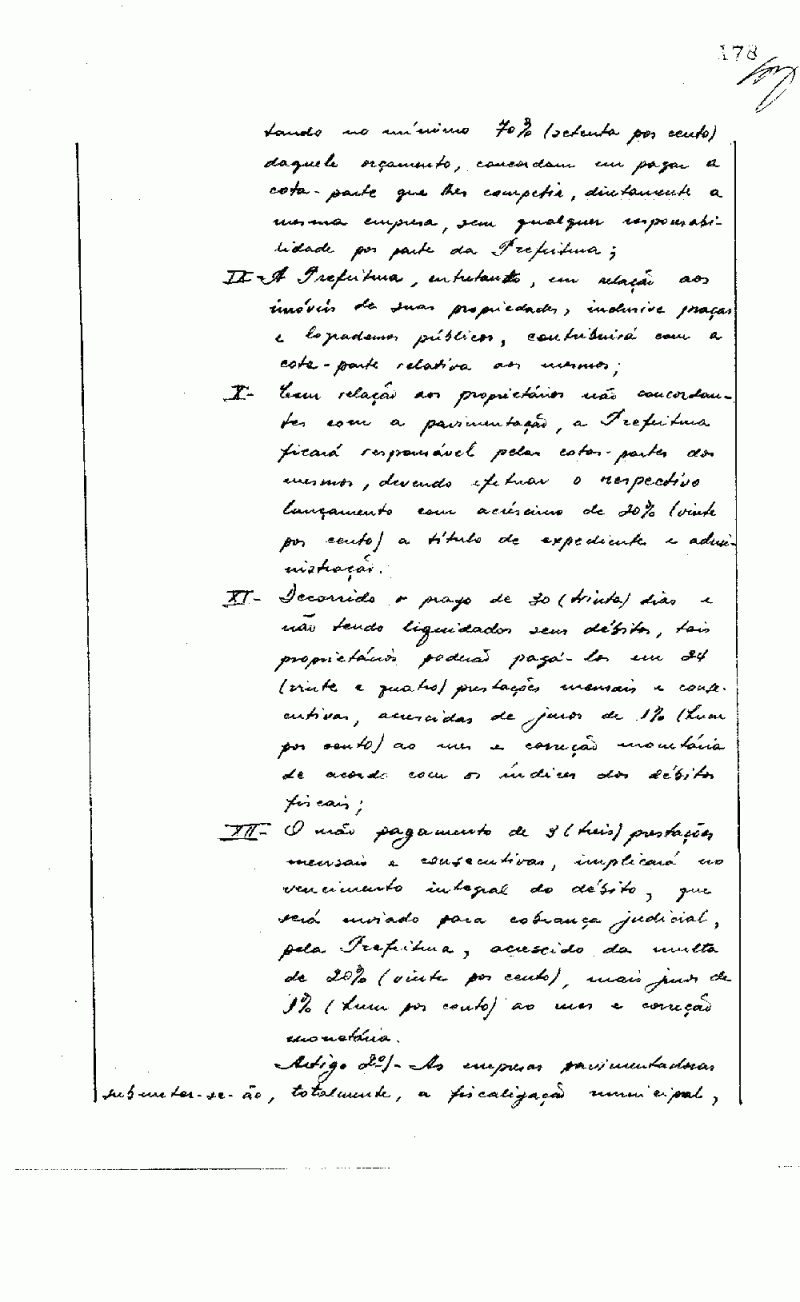 178
tando no mínimo 70% (setenta por cento)
daquele orçamento, concordam em pagar a
cota-parte que lhes competir, diretamente a
mesma empresa, sem qualquer responsabi-
lidade por parte da Prefeitura;
IX- A Prefeitura, entretanto, em relação aos
imóveis de suas propriedades, inclusive praças
e logradouros públicos, contribuirá com a
cota-parte relativa aos mesmos;
X- Com relação aos proprietários não concordan-
tes com a pavimentação, a Prefeitura
ficará responsável pelas cotas-partes dos
mesmos, devendo efetuar o respectivo
lançamento com acréscimo de 20% (vinte
por cento) a título de expediente e admi-
nistração.
XI- Decorrido o prazo de 30 (trinta) dias e
não tendo liquidados seus débitos, tais
proprietários poderão pagá-los em 24
(vinte e quatro) prestações mensais e conse-
cutivas, acrescidas de juros de 1% (hum
por cento) ao mes e correção monetária
de acordo com os índices dos débitos
fiscais;
XII- O não pagamento de 3 (treis) prestações
mensais e consecutivas, implicará no
vencimento integral do débito, que
será enviado para cobrança judicial,
pela Prefeitura, acrescido da multa
de 20% (vinte por cento), mais juros de
1% (hum por cento) ao mes e correção
monetária.
Artigo 2º)- As empresas pavimentadoras
submeter-se-ão, totalmente, a fiscalização municipal,